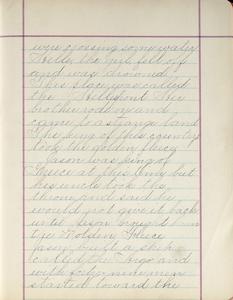 were crossing some water
Helle the girl fell off
and was drowned
This place was called
the Hellespont Her
brother rode on and
came to a strange land
The king of this country
took the golden fleece
Jason was king of
Greece at this time but
his uncle took the
throne and said he
would not give it back
until Jason brought him
the Golden Fleece
Jason built a ship
called the Argo and
with fifty nine men
started toward the